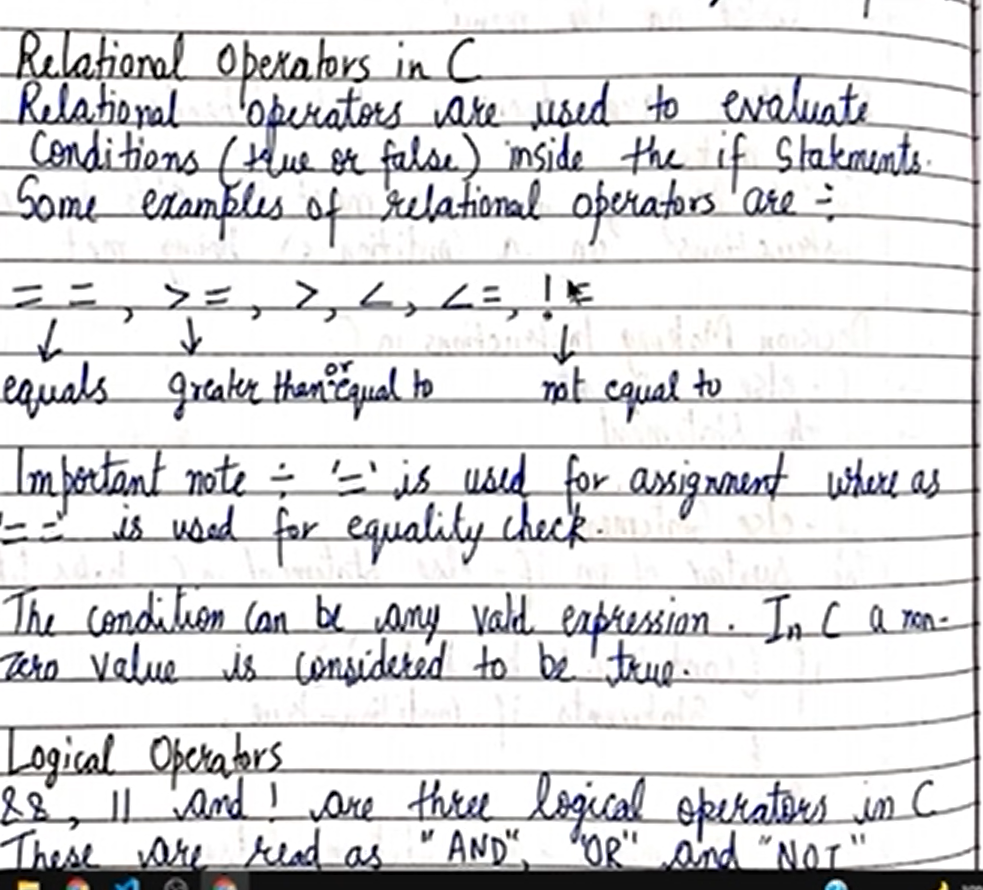 Relational Operators in C
Relational operators are used to evaluate
Conditions (true or false) inside the if Statements.
Some examples of relational operators are ÷
= =, >=, >, <, <=, !=
↓ ↓ ↓
equals greater than or equal to not equal to
Important note ÷ '=' is used for assignment where as
'= =' is used for equality check.
The condition can be any valid expression. In C a non-
zero value is considered to be true.
Logical Operators
&&, || and ! are three logical operators in C
These are read as "AND", "OR" and "NOT"